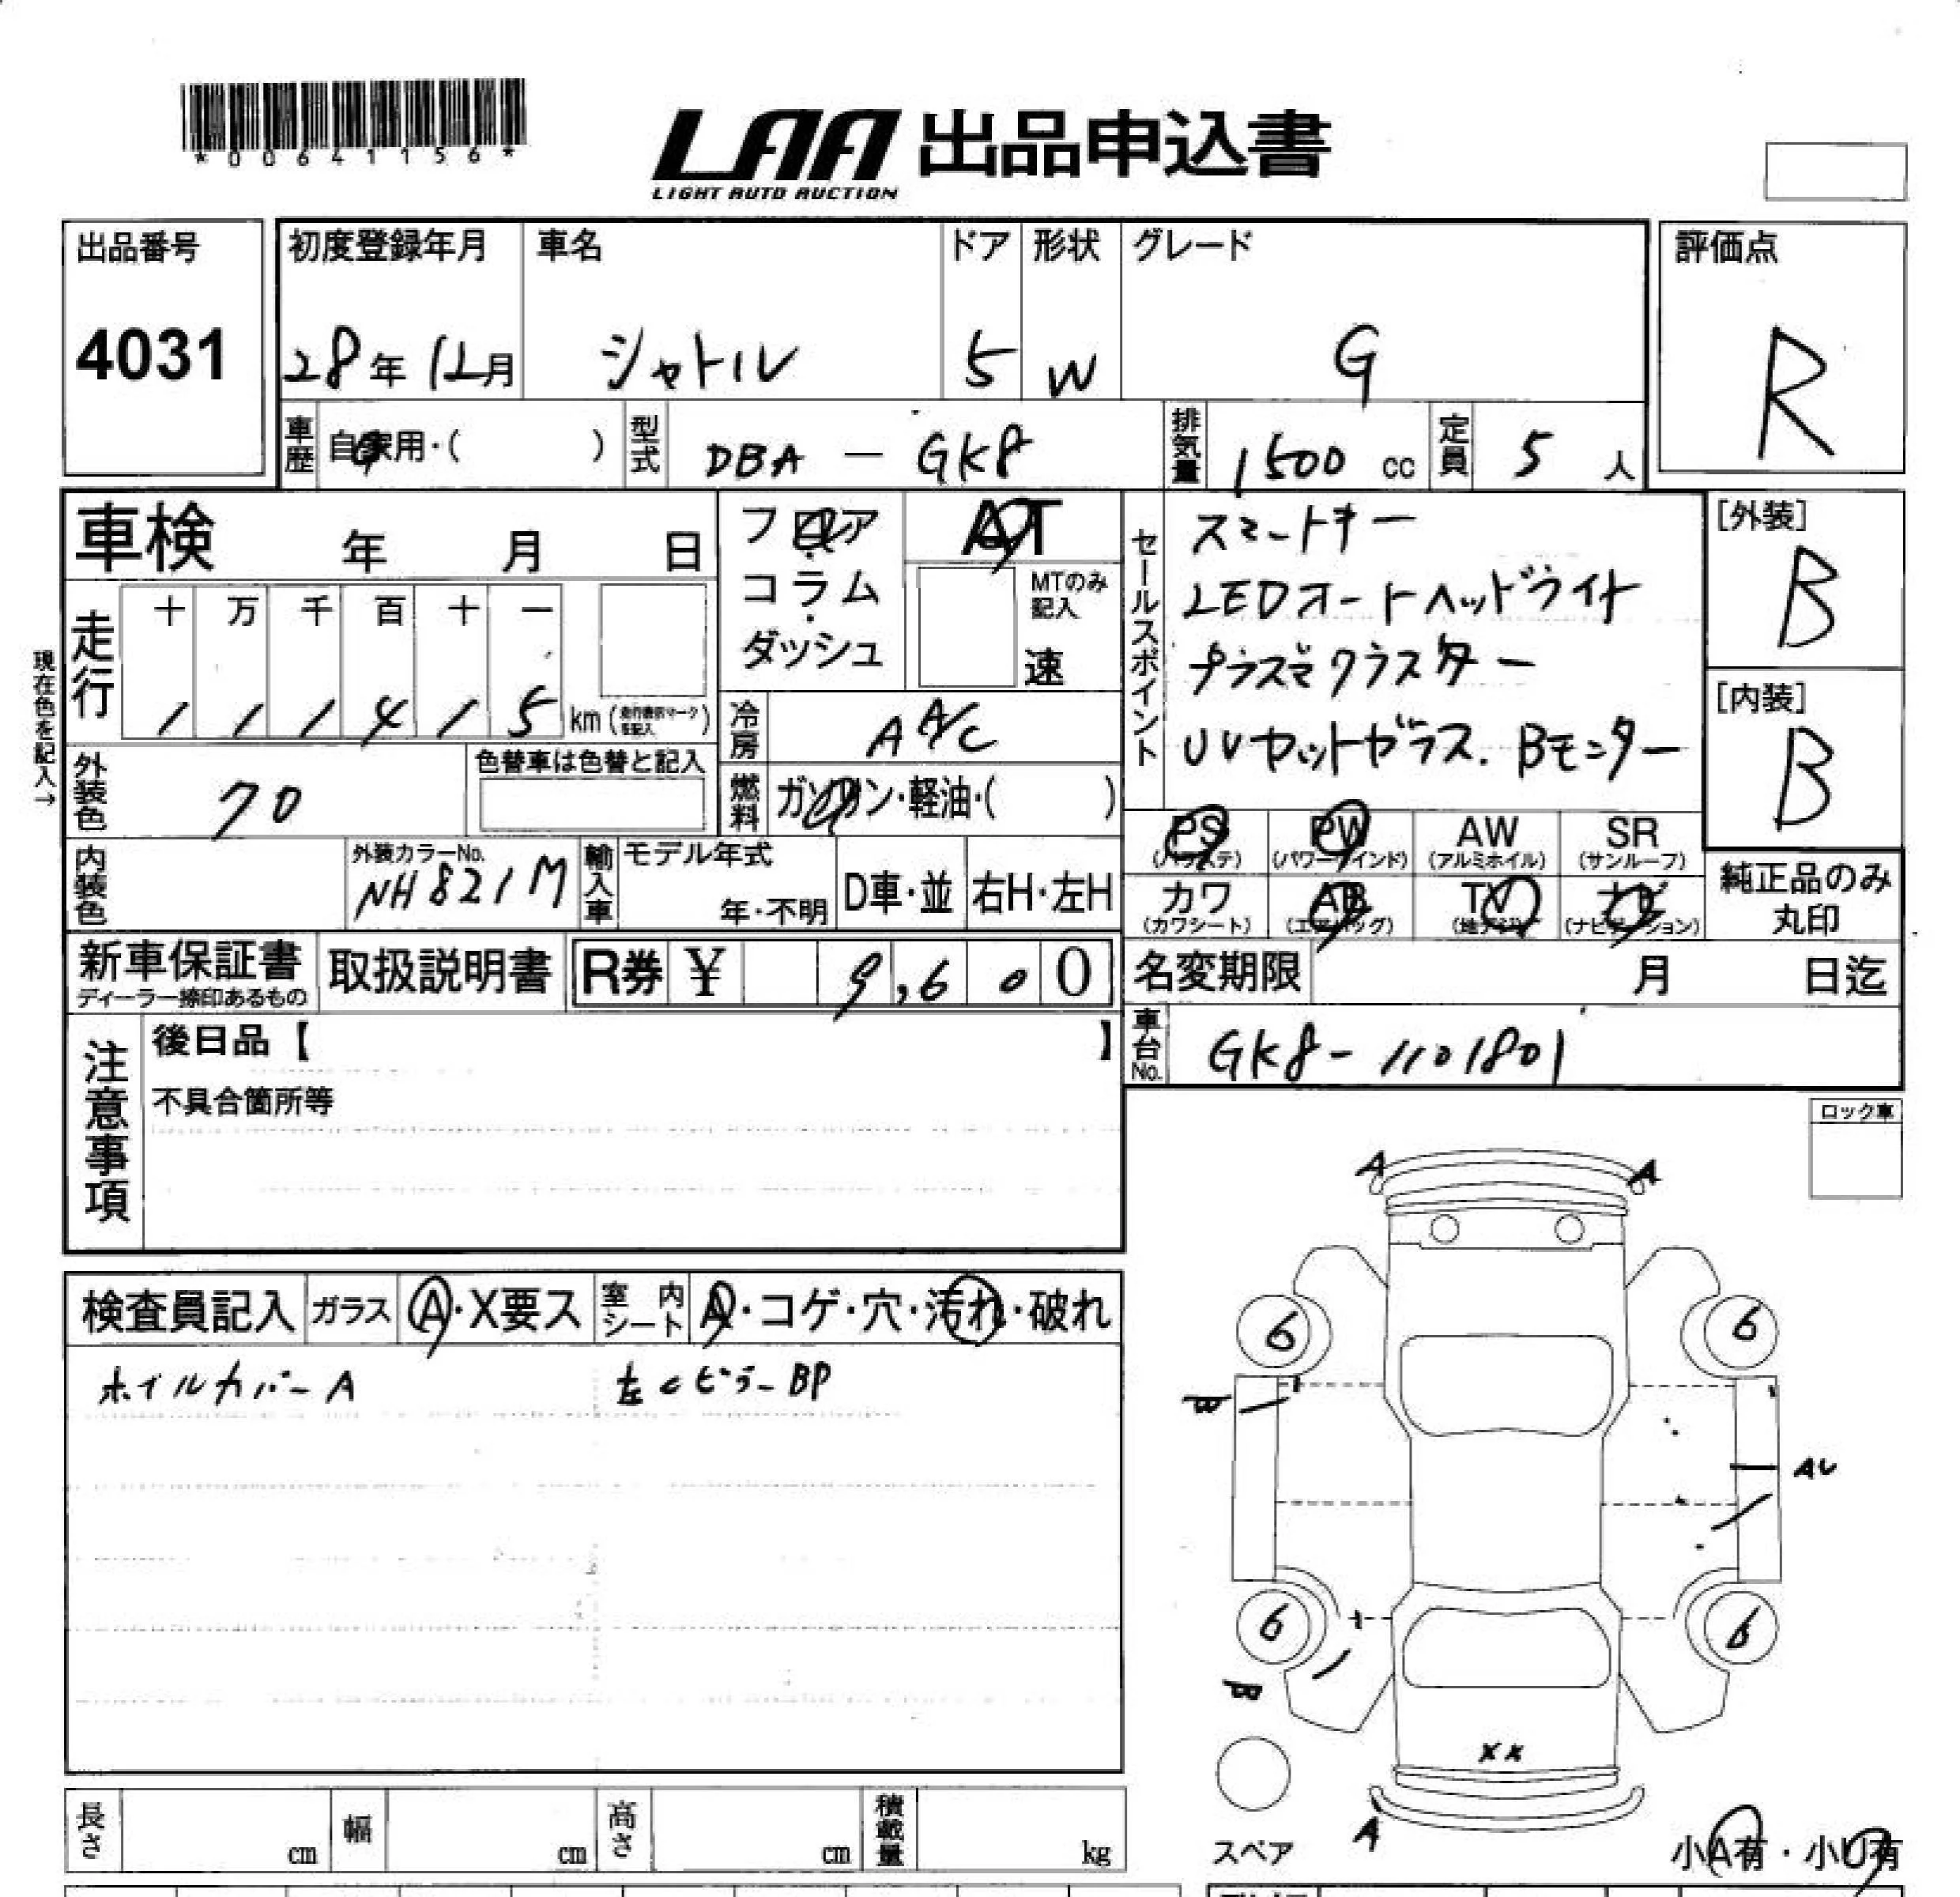 *00641156*
LAA 出品申込書
LIGHT AUTO AUCTION
出品番号
4031
初度登録年月
28年12月
車名
シャトル
ドア
5
形状
W
グレード
G
評価点
R
車歴 自家用・( )
型式 DBA - GK8
排気量 1500 cc
定員 5 人
車検 年 月 日
フロア・コラム・ダッシュ
AT
MTのみ記入
速
現在色を記入→
走行
十 万 千 百 十 一
1 1 1 4 1 5 km
冷房 AA/C
外装色 70
色替車は色替と記入
燃料 ガソリン・軽油・( )
内装色
外装カラーNo.
NH821M
輸入車
モデル年式
年・不明
D車・並
右H・左H
セールスポイント
スマートキー
LEDオートヘッドライト
プラズマクラスター
UVカットガラス.Bモニター
[外装]
B
[内装]
B
PS (パワステ)
PW (パワーウインド)
AW (アルミホイル)
SR (サンルーフ)
カワ (カワシート)
AB (エアバッグ)
TV (地デジ)
ナビ (ナビゲーション)
純正品のみ丸印
新車保証書
ディーラー捺印あるもの
取扱説明書
R券 ¥ 9,600
名変期限 月 日迄
車台No. GK8-1101801
注意事項
後日品【 】
不具合箇所等
ロック車
検査員記入
ガラス A・X要ス
室内シート A・コゲ・穴・汚れ・破れ
ホイルカバーA
左CピラーBP
A A
6 6
W
AU
6 6
B
XX
A
スペア
小A有・小U有
長さ cm
幅 cm
高さ cm
積載量 kg